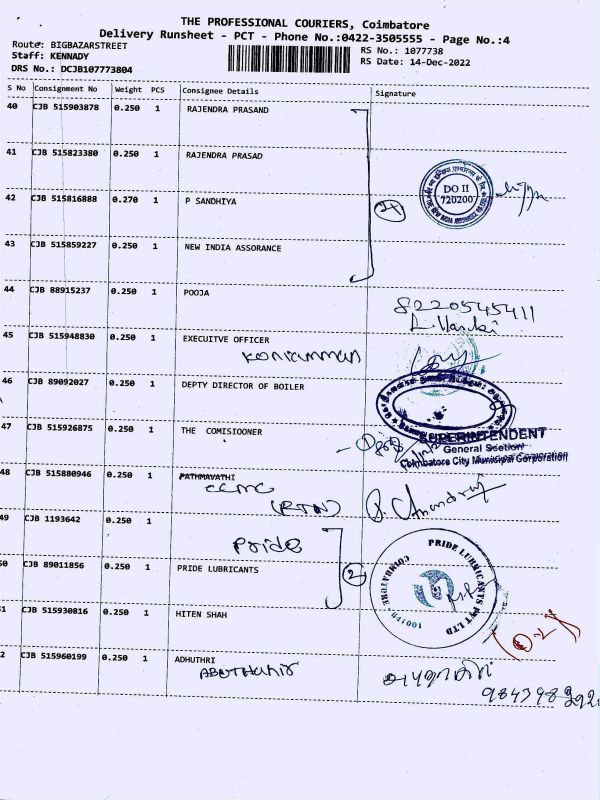 THE PROFESSIONAL COURIERS, Coimbatore
Delivery Runsheet - PCT - Phone No.:0422-3505555 - Page No.:4
Route: BIGBAZARSTREET
Staff: KENNADY
DRS No.: DCJB107773804
RS No.: 1077738
RS Date: 14-Dec-2022
S No Consignment No Weight PCS Consignee Details Signature
40 CJB 515903878 0.250 1 RAJENDRA PRASAND
41 CJB 515823380 0.250 1 RAJENDRA PRASAD
DO II
720200
42 CJB 515816888 0.270 1 P SANDHIYA
43 CJB 515859227 0.250 1 NEW INDIA ASSORANCE
44 CJB 88915237 0.250 1 POOJA
8220545411
45 CJB 515948830 0.250 1 EXECUITVE OFFICER
Koniamman
46 CJB 89092027 0.250 1 DEPTY DIRECTOR OF BOILER
47 CJB 515926875 0.250 1 THE COMISIOONER
SUPERINTENDENT
General Section
Coimbatore City Municipal Corporation
48 CJB 515880946 0.250 1 PATHMAVATHI
CCMC
(RTN)
49 CJB 1193642 0.250 1
Pride
50 CJB 89011856 0.250 1 PRIDE LUBRICANTS
2
PRIDE LUBRICANTS PVT LTD
COIMBATORE
51 CJB 515930816 0.250 1 HITEN SHAH
52 CJB 515960199 0.250 1 ADHUTHRI